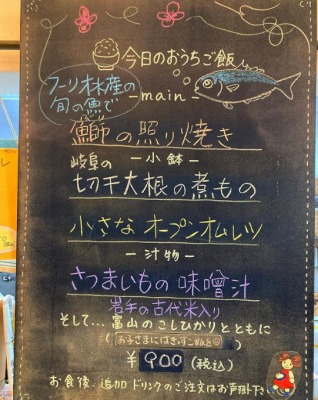 今日のおうちご飯
旬の魚で
-main-
鰤の照り焼き
岐阜の -小鉢-
切干大根の煮もの
小さな オープンオムレツ
-汁物-
さつまいもの 味噌汁
岩手の古代米入り
そして… 富山のこしひかりとともに
¥900(税込)
お食後、追加ドリンクのご注文はお声掛け下さい